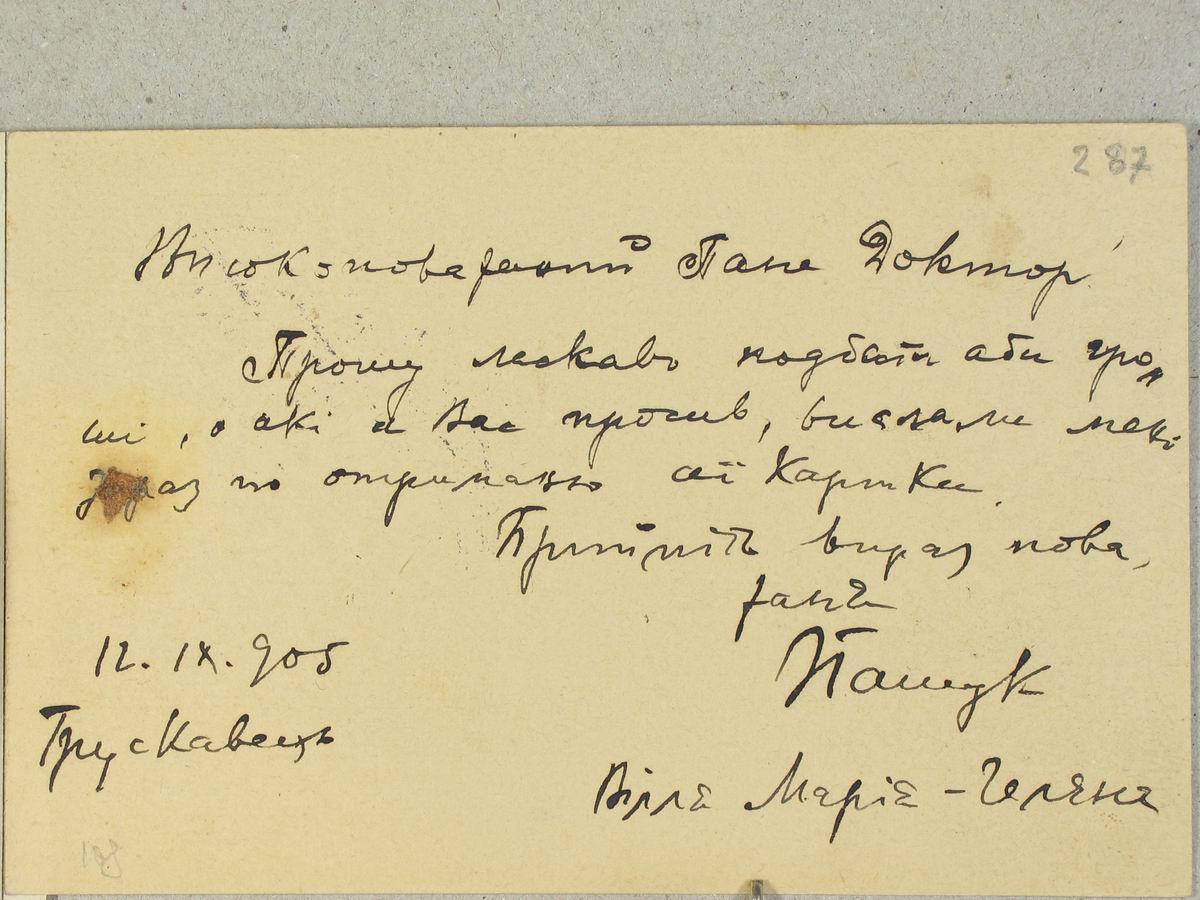 287
Високоповажаний Пане Доктор!
Прошу ласкаво подбати аби гро„
ші, о які я Вас просив, вислали мені
зараз по отриманю сеї Картки.
Прийміть вираз пова,
жаня
ИПащук
12. IX. 905
Трускавець
Вілля Марія - Геляна